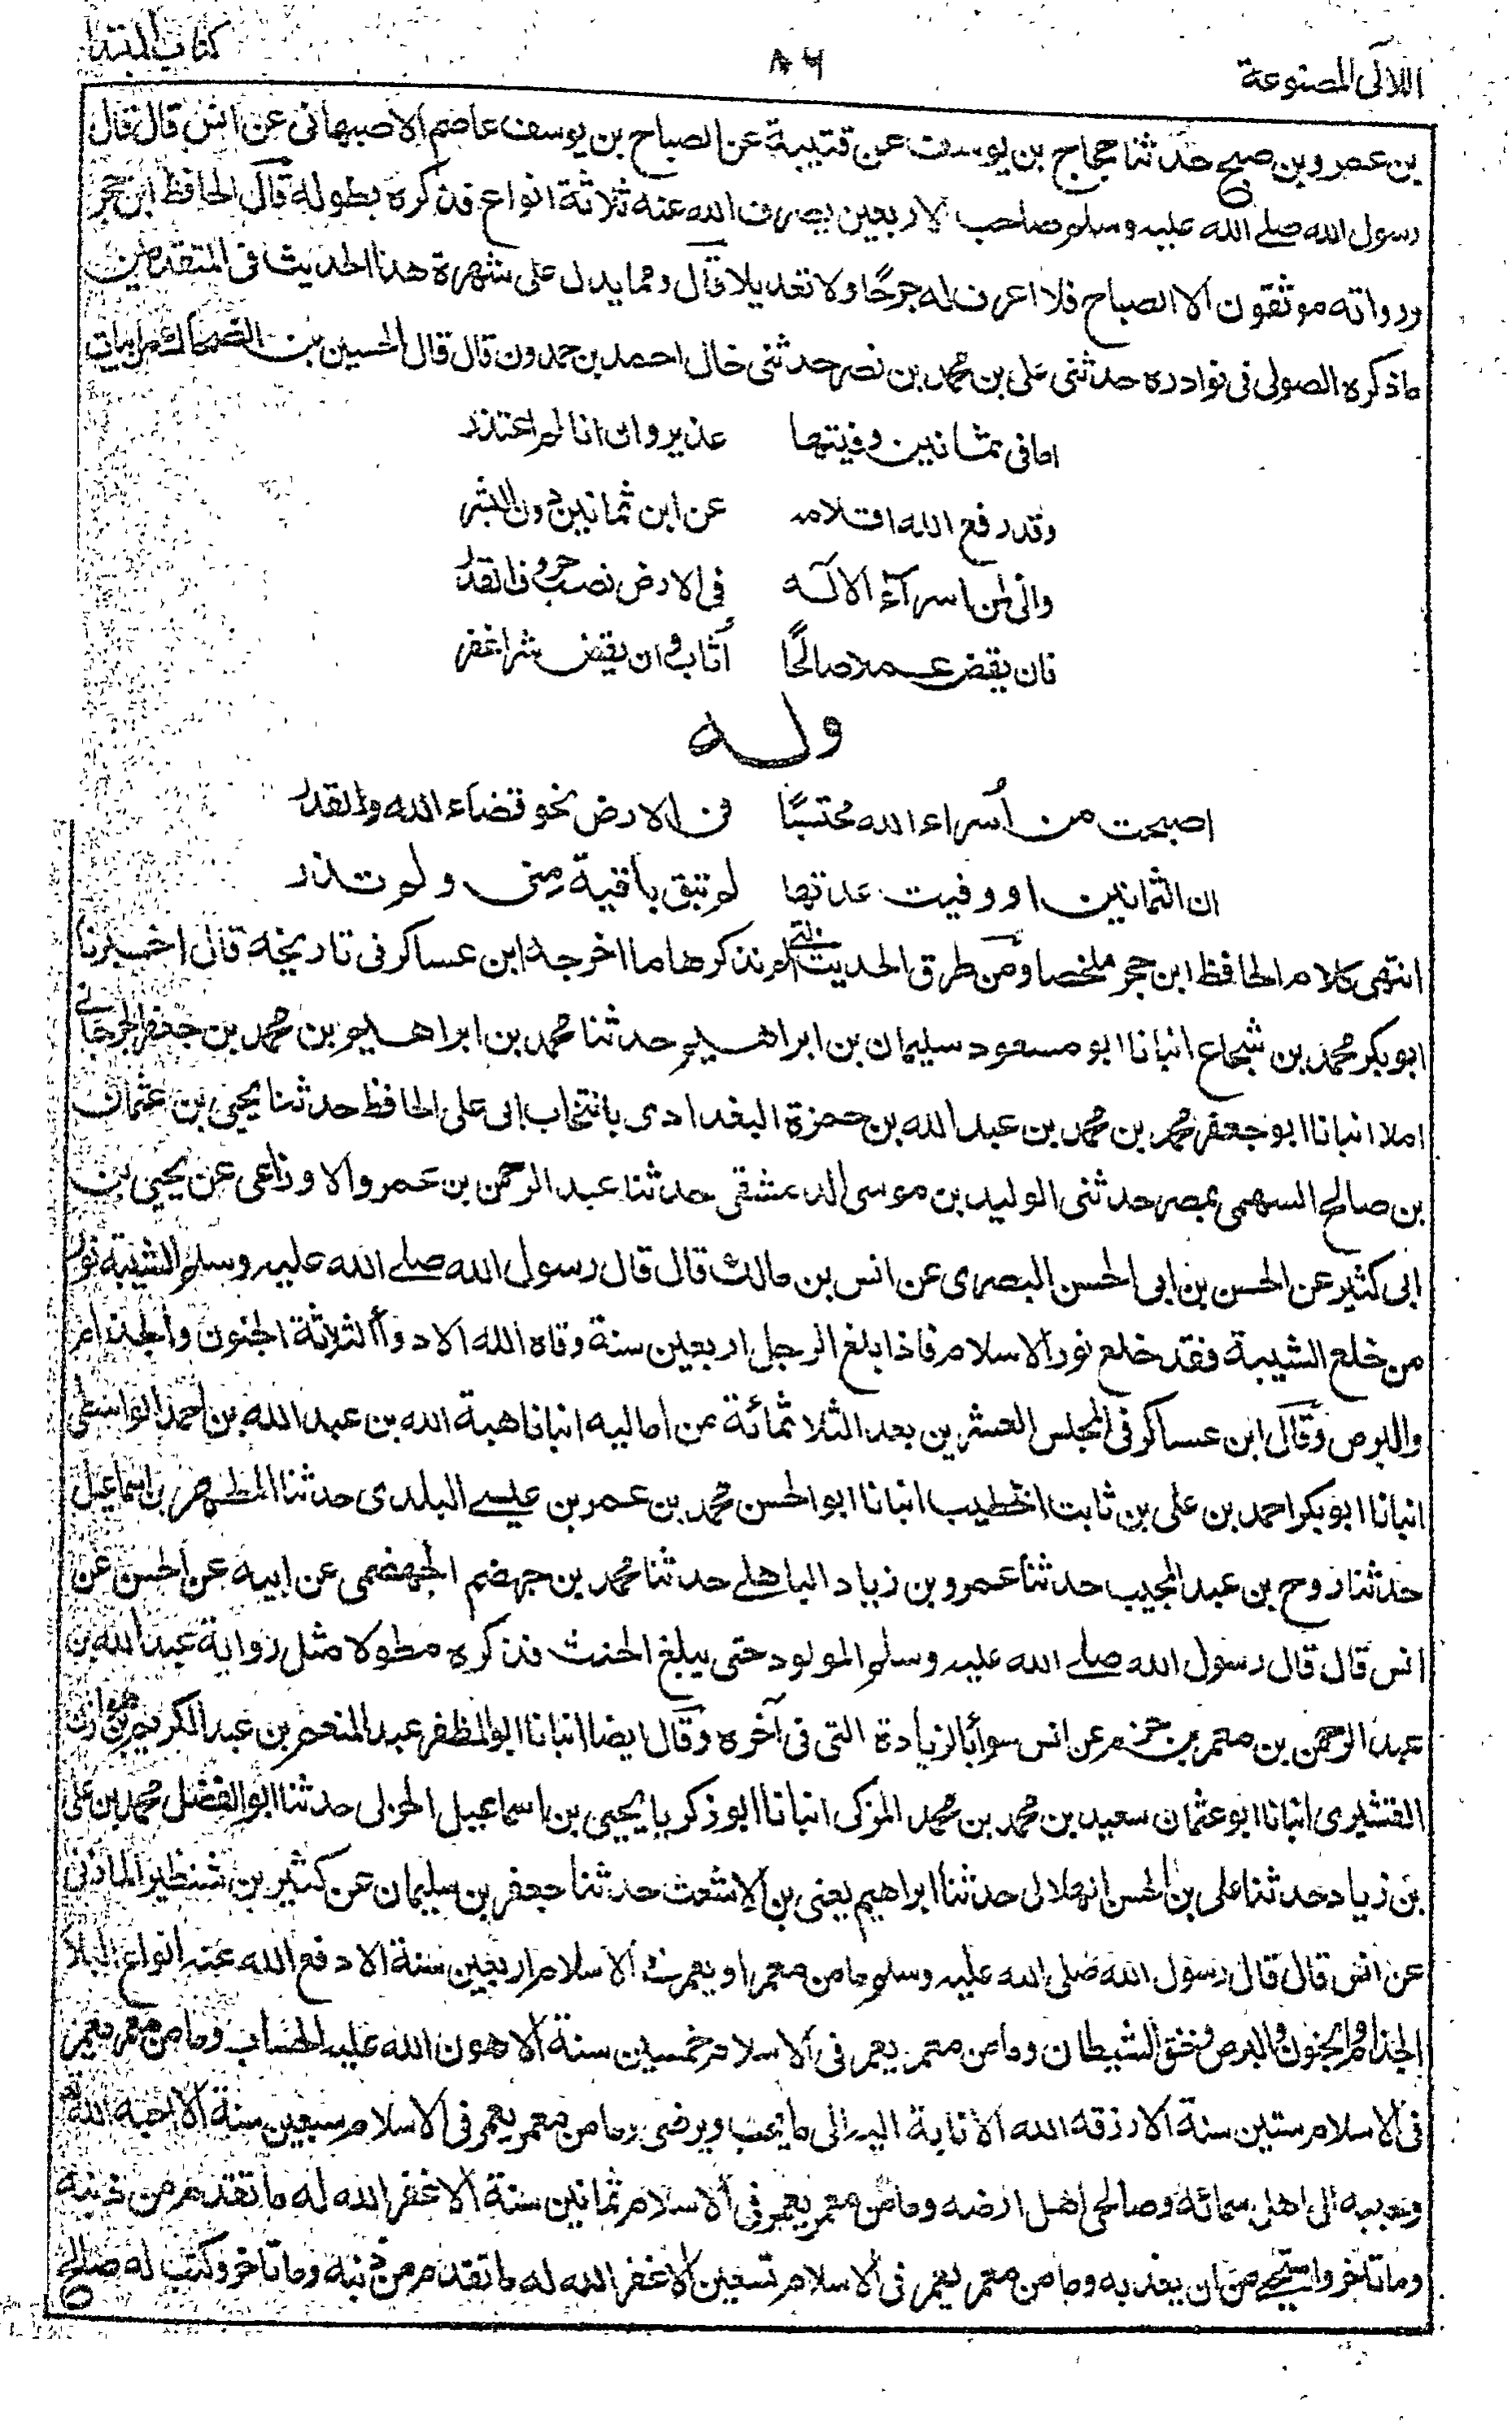 اللآلى المصنوعة
٨٦
كتاب المبتدا
بن عمرو بن صبيح حدثنا حجاج بن يوسف عن قتيبة عن الصباح بن يوسف عاصم الاصبهانى عن انس قال قال
رسول الله صلے الله عليه وسلم صاحب الاربعين يصرف الله عنه ثلاثة انواع فذكره بطوله قال الحافظ ابن حجر
ورواته موثقون الا الصباح فلا اعرف له جرحا ولا تعديلا قال ومما يدل على شهرة هذا الحديث فى المتقدمين
ما ذكره الصولى فى نوادره حدثنى على بن محمد بن نصر حدثنى خالى احمد بن حمدون قال قال الحسين بن الضحاك من ابيات
اما فى ثمانين وفيتها عذير وان انا لم اعتذر
وقد رفع الله اقلامه عن ابن ثمانين دون البشر
وانى لمن اسرآء الاله فى الارض نصب حروف القدر
فان يقض عملا صالحًا أثاب وان يقض شرا غفر
وله
اصبحت من أسراء الله محتسبًا فى الارض نحو قضاء الله والقدر
ان الثمانين اذ وفيت عدتها لم تبق باقية منى ولم تذر
انتهى كلام الحافظ ابن حجر ملخصا ومن طرق الحديث التى لم نذكرها ما اخرجه ابن عساكر فى تاريخه قال اخبرنا
ابو بكر محمد بن شجاع انبانا ابو مسعود سليمان بن ابراهيم حدثنا محمد بن ابراهيم بن محمد بن جعفر الجرجانے
املا انبانا ابو جعفر محمد بن محمد بن عبد الله بن حمزة البغدادى بانتخاب ابى على الحافظ حدثنا يحيى بن عثمان
بن صالح السهمى بمصر حدثنى الوليد بن موسى الدمشقى حدثنا عبد الرحمن بن عمرو الاوزاعى عن يحيى بن
ابى كثير عن الحسن بن ابى الحسن البصرى عن انس بن مالك قال قال رسول الله صلے الله عليه وسلم الشيبة نور
من خلع الشيبة فقد خلع نور الاسلام فاذا بلغ الرجل اربعين سنة وقاه الله الادوأ الثلاثة الجنون والجذام
والبرص وقال ابن عساكر فى المجلس العشرين بعد الثلاثمائة من اماليه انبانا هبة الله بن عبد الله بن احمد الواسطى
انبانا ابو بكر احمد بن على بن ثابت الخطيب انبانا ابو الحسن محمد بن عمر بن عيسے البلدى حدثنا المطهر بن اسماعيل
حدثنا روح بن عبد المجيب حدثنا عمرو بن زياد الباهلے حدثنا محمد بن جهضم الجهضمى عن ابيه عن الحسن عن
انس قال قال رسول الله صلے الله عليه وسلم المولود حتى يبلغ الحنث فذكره مطولا مثل رواية عبد الله بن
عبد الرحمن بن معمر بن حزم عن انس سوأ بالزيادة التى فى آخره وقال ايضا انبانا ابو المظفر عبد المنعم بن عبد الكريم بن هوازن
القشيرى انبانا ابو عثمان سعيد بن محمد بن محمد المزكى انبانا ابو زكريا يحيى بن اسماعيل الحزلى حدثنا ابو الفضل محمد بن على
بن زياد حدثنا على بن الحسن الهلالى حدثنا ابراهيم يعنى بن الاشعث حدثنا جعفر بن سليمان عن كثير بن شنظير المازنى
عن انس قال قال رسول الله صلى الله عليه وسلم ما من معمر او يعمر فى الاسلام اربعين سنة الا دفع الله عنه انواع البلأ
الجذام والجنون والبرص وخنق الشيطان وما من معمر يعمر فى الاسلام خمسين سنة الا هون الله عليه الحساب وما من معمر يعمر
فى الاسلام ستين سنة الا رزقه الله الانابة اليه الى ما يحب ويرضى وما من معمر يعمر فى الاسلام سبعين سنة الا احبه الله
وحببه الى اهل سمائه وصالحى اهل ارضه وما من معمر يعمر فى الاسلام ثمانين سنة الا غفر الله له ما تقدم من ذنبه
وما تاخر واستحے من ان يعذبه وما من معمر يعمر فى الاسلام تسعين الا غفر الله له ما تقدم من ذنبه وما تاخر وكتب له صالح